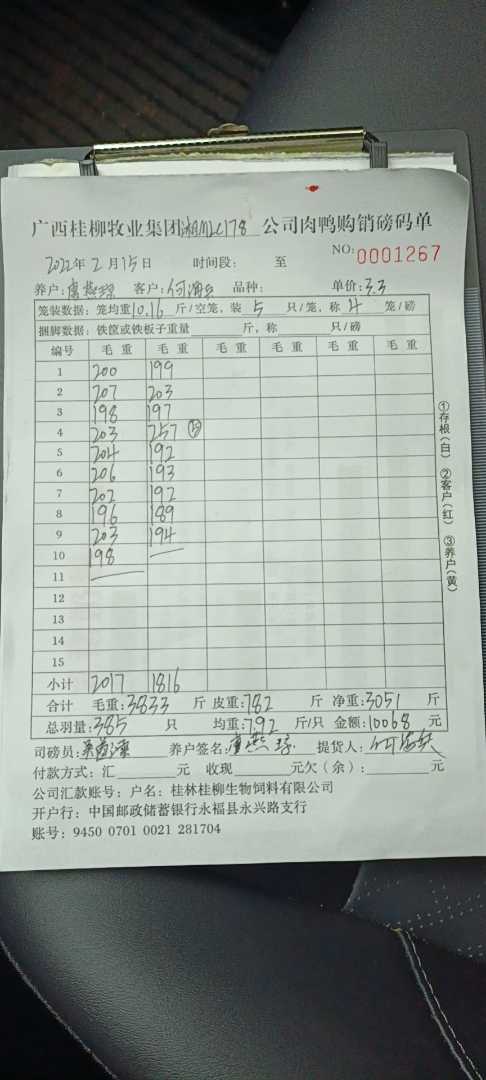 广西桂柳牧业集团湘MLC178公司肉鸭购销磅码单
2022年2月15日 时间段： 至 NO:0001267
养户:唐燕琼 客户:何 品种： 单价:3.3
笼装数据：笼均重10.16斤/空笼，装5只/笼，称4笼/磅
捆脚数据：铁筐或铁板子重量 斤，称 只/磅
编号 毛重 毛重 毛重 毛重 毛重 毛重
1 200 199
2 207 203
3 198 197
4 203 257
5 204 192
6 206 193
7 202 192
8 196 189
9 203 194
10 198 —
11 —
12
13
14
15
小计 2017 1816
合计 毛重:3833 斤 皮重:782 斤 净重:3051 斤
总羽量:385 只 均重:7.92 斤/只 金额:10068 元
司磅员: 养户签名:唐燕琼 提货人:何
付款方式：汇 元 收现 元欠（余）: 元
公司汇款账号：户名：桂林桂柳生物饲料有限公司
开户行：中国邮政储蓄银行永福县永兴路支行
账号：9450 0701 0021 281704
①存根（白） ②客户（红） ③养户（黄）